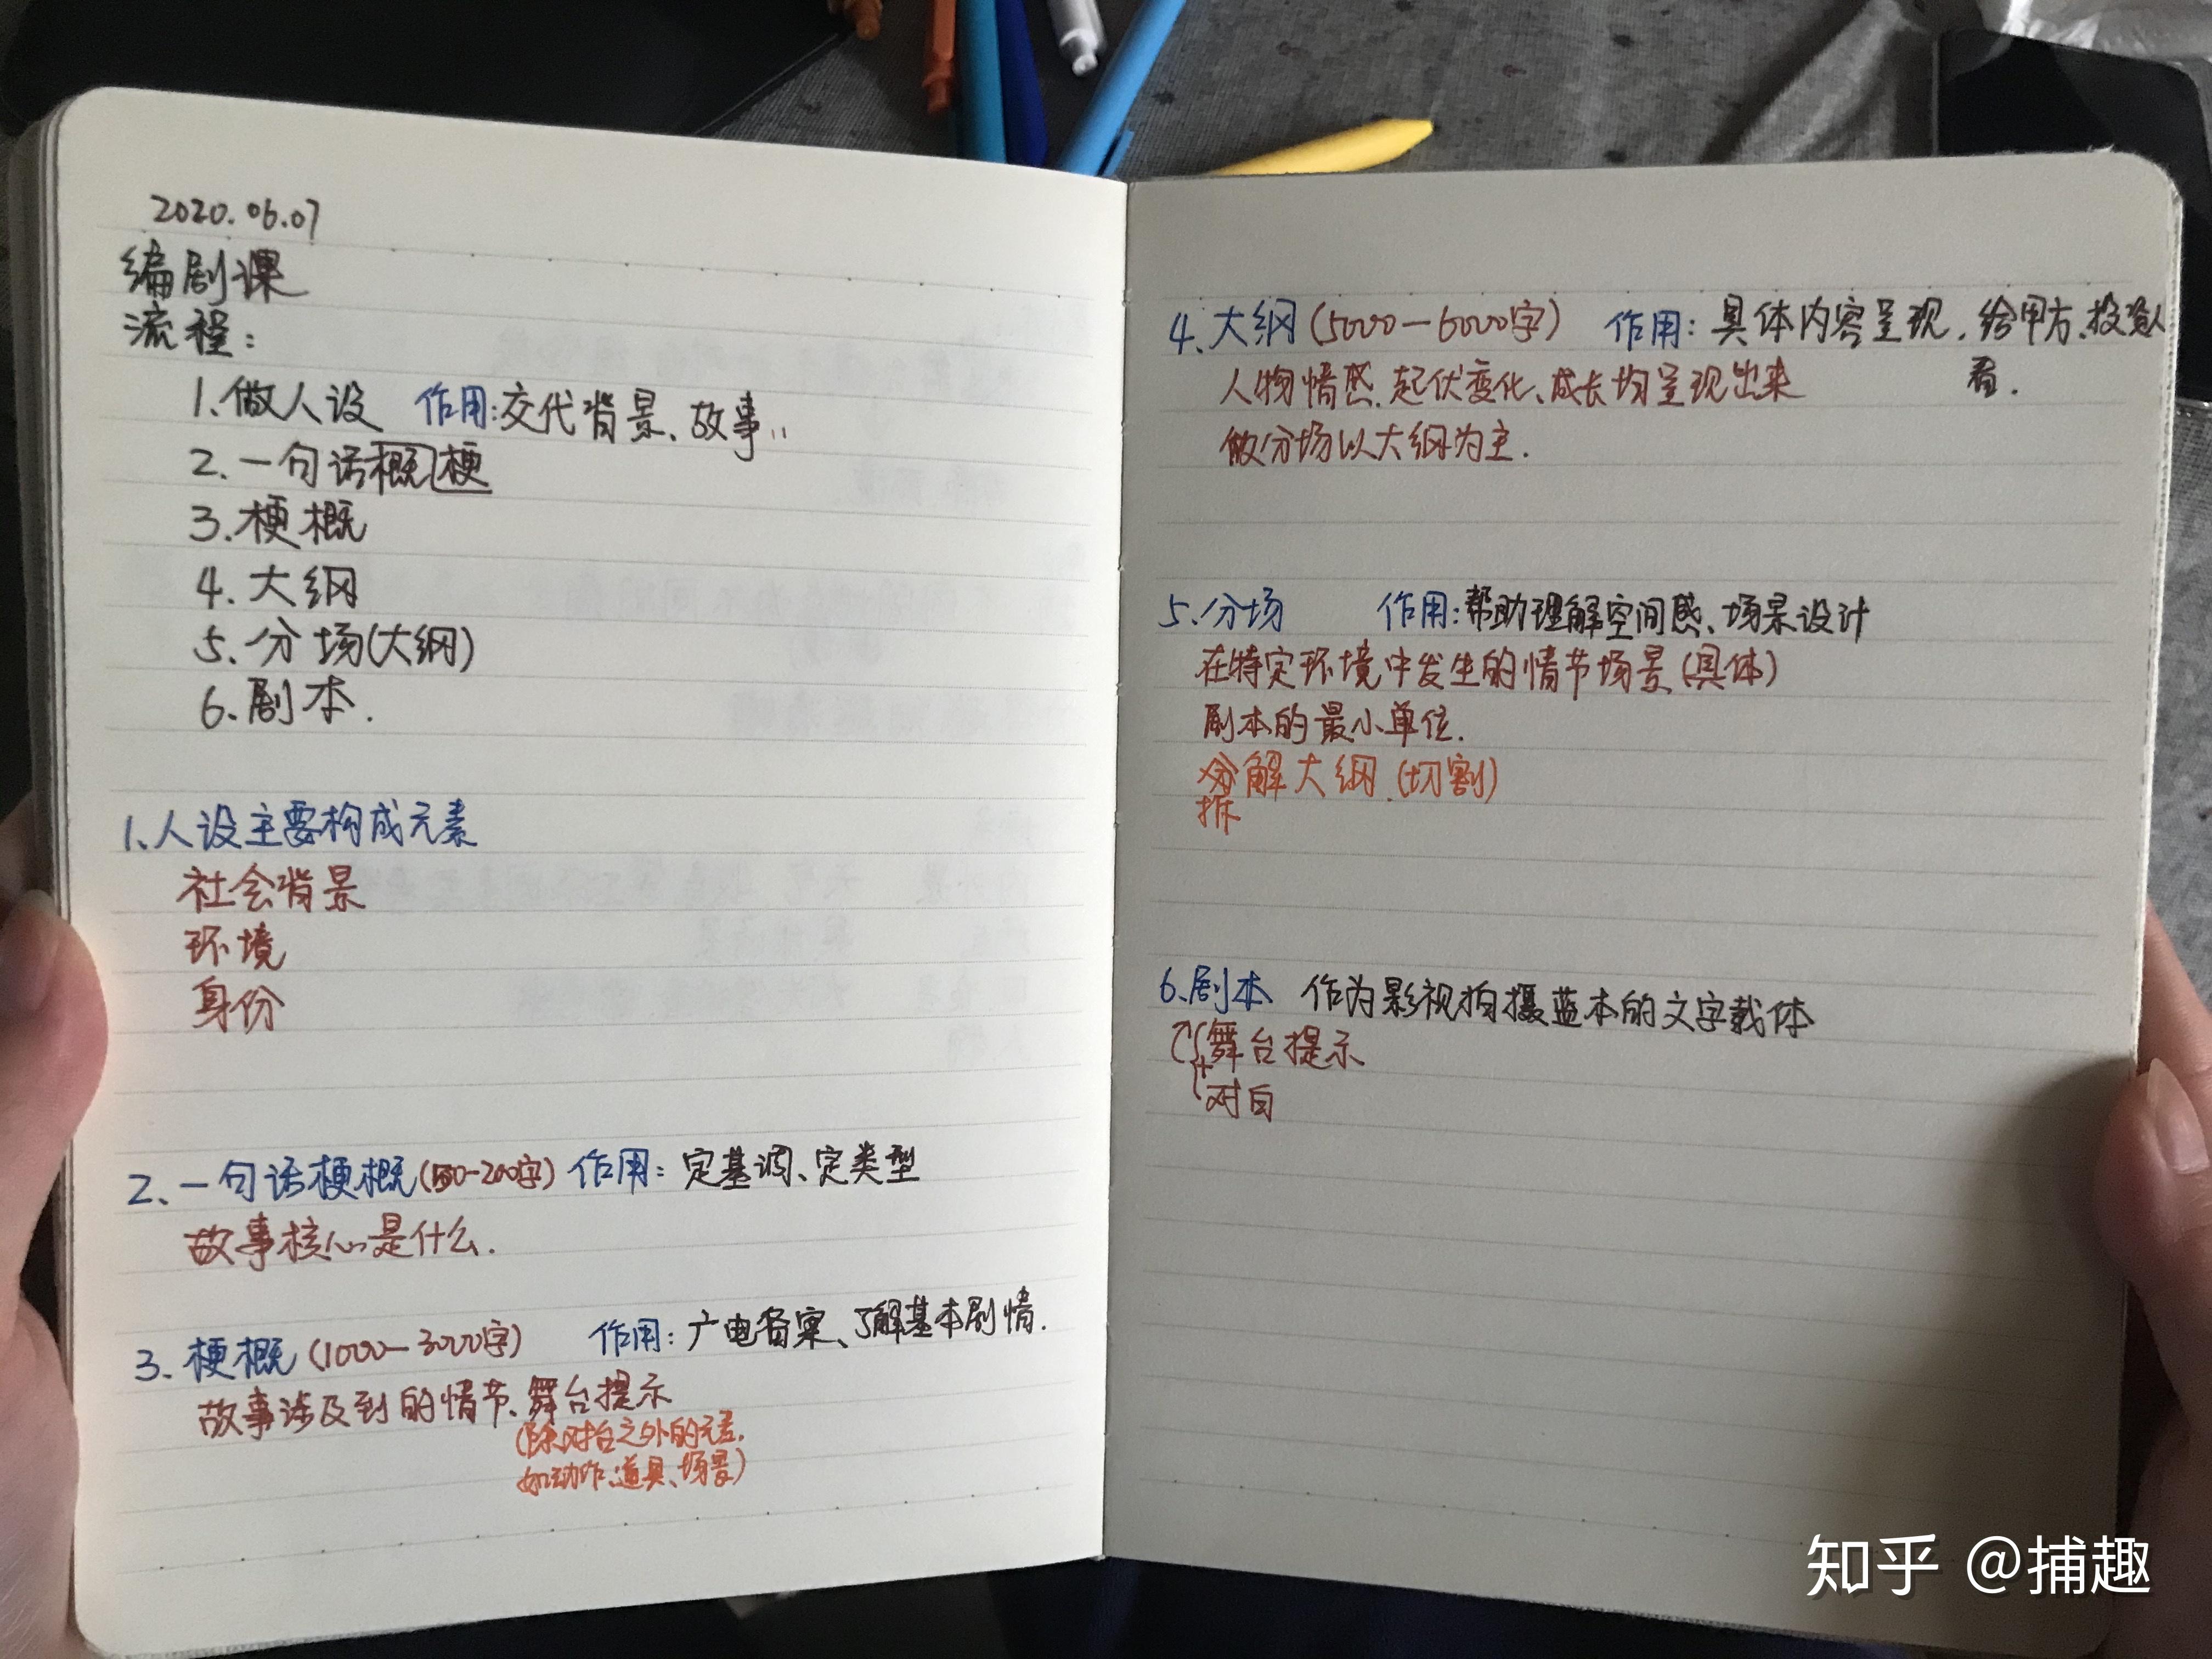 2020.06.07
编剧课
流程：
1.做人设 作用:交代背景、故事..
2.一句话概梗
3.梗概
4.大纲
5.分场(大纲)
6.剧本.
1.人设主要构成元素
社会背景
环境
身份
2.一句话梗概(50-200字) 作用：定基调、定类型
故事核心是什么.
3.梗概(1000-3000字) 作用：广电备案、了解基本剧情.
故事涉及到的情节、舞台提示
(除对台之外的元素,
如动作、道具、场景)
4.大纲(5000-6000字) 作用：具体内容呈现，给甲方、投资人
看.
人物情感、起伏变化、成长均呈现出来
做分场以大纲为主.
5.分场 作用:帮助理解空间感、场景设计
在特定环境中发生的情节场景(具体)
剧本的最小单位.
分解大纲(切割)
拆
6.剧本 作为影视拍摄蓝本的文字载体
舞台提示
+
对白
知乎 @捕趣